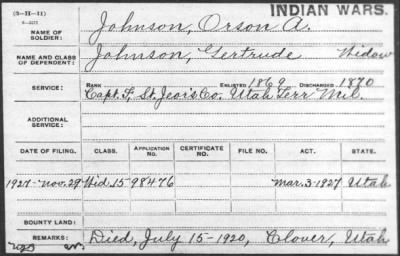 (3-H-11)
INDIAN WARS.
NAME OF SOLDIER: Johnson, Orson A.
NAME AND CLASS OF DEPENDENT: Johnson, Gertrude Widow
SERVICE: RANK ENLISTED 1869 DISCHARGED 1870
Capt. F, St. Jeor's Co. Utah Terr Mil.
ADDITIONAL SERVICE:
DATE OF FILING. CLASS. APPLICATION NO. CERTIFICATE NO. FILE NO. ACT. STATE.
1927-Nov.29 Wid. 1598476 Mar. 3-1927 Utah
BOUNTY LAND:
REMARKS: Died, July 15-1920, Clover, Utah